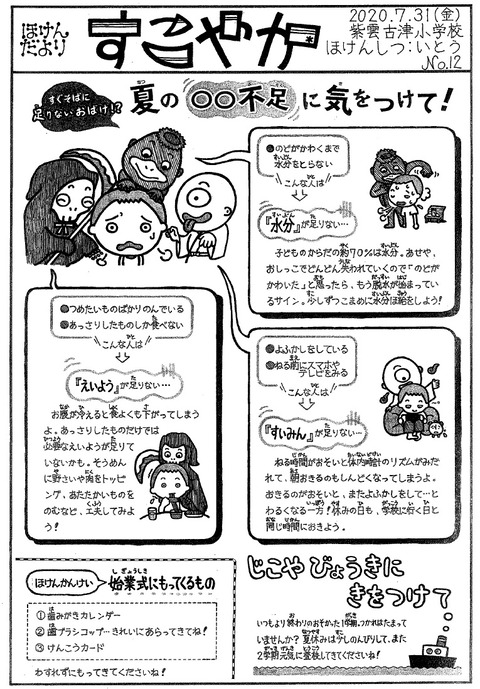 ほけん
だより
すこやか
2020.7.31(金)
紫雲古津小学校
ほけんしつ:いとう
No.12
すぐそばに
足りないおばけ!?
夏の〇〇不足に気をつけて!
●のどがかわくまで
水分をとらない
こんな人は
『水分』が足りない…
子どものからだの約70%は水分。あせや、
おしっこでどんどん失われていくので「のどが
かわいた」と思ったら、もう脱水が始まってい
るサイン。少しずつこまめに水分ほ給をしよう!
●つめたいものばかりのんでいる
●あっさりしたものしか食べない
こんな人は
『えいよう』が足りない…
お腹が冷えると食よくも下がってしまう
よ。あっさりしたものだけでは
必要なえいようが足りて
いないかも。そうめん
に野さいや肉をトッピ
ング、あたたかいものを
のむなど、工夫してみよ
う!
●よふかしをしている
●ねる前にスマホや
テレビをみる
こんな人は
『すいみん』が足りない…
ねる時間がおそいと体内時計のリズムがみだ
れて、朝おきるのもしんどくなってしまうよ。
おきるのがおそいと、またよふかしをして…と
わるくなる一方!休みの日も、学校に行く日と
同じ時間におきよう。
ほけんかんけい
始業式にもってくるもの
①歯みがきカレンダー
②歯ブラシコップ…きれいにあらってきてね!
③けんこうカード
わすれずにもってきてくださいね!
じこや びょうきに
きをつけて
いつもより終わりのおそかった1学期。つかれはたまって
いませんか?夏休みは少しのんびりして、また
2学期元気に登校してきてくださいね!